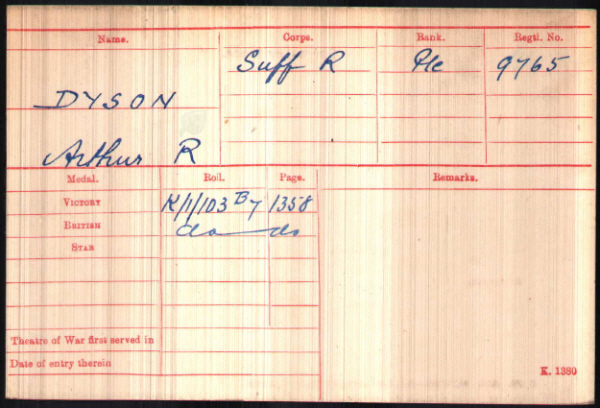 Name. Corps. Rank. Regtl. No.
Suff R Pte 9765
DYSON
Arthur R
Medal. Roll. Page. Remarks.
VICTORY K/1/103 B7 1358
BRITISH do do
STAR
Theatre of War first served in
Date of entry therein
K. 1380